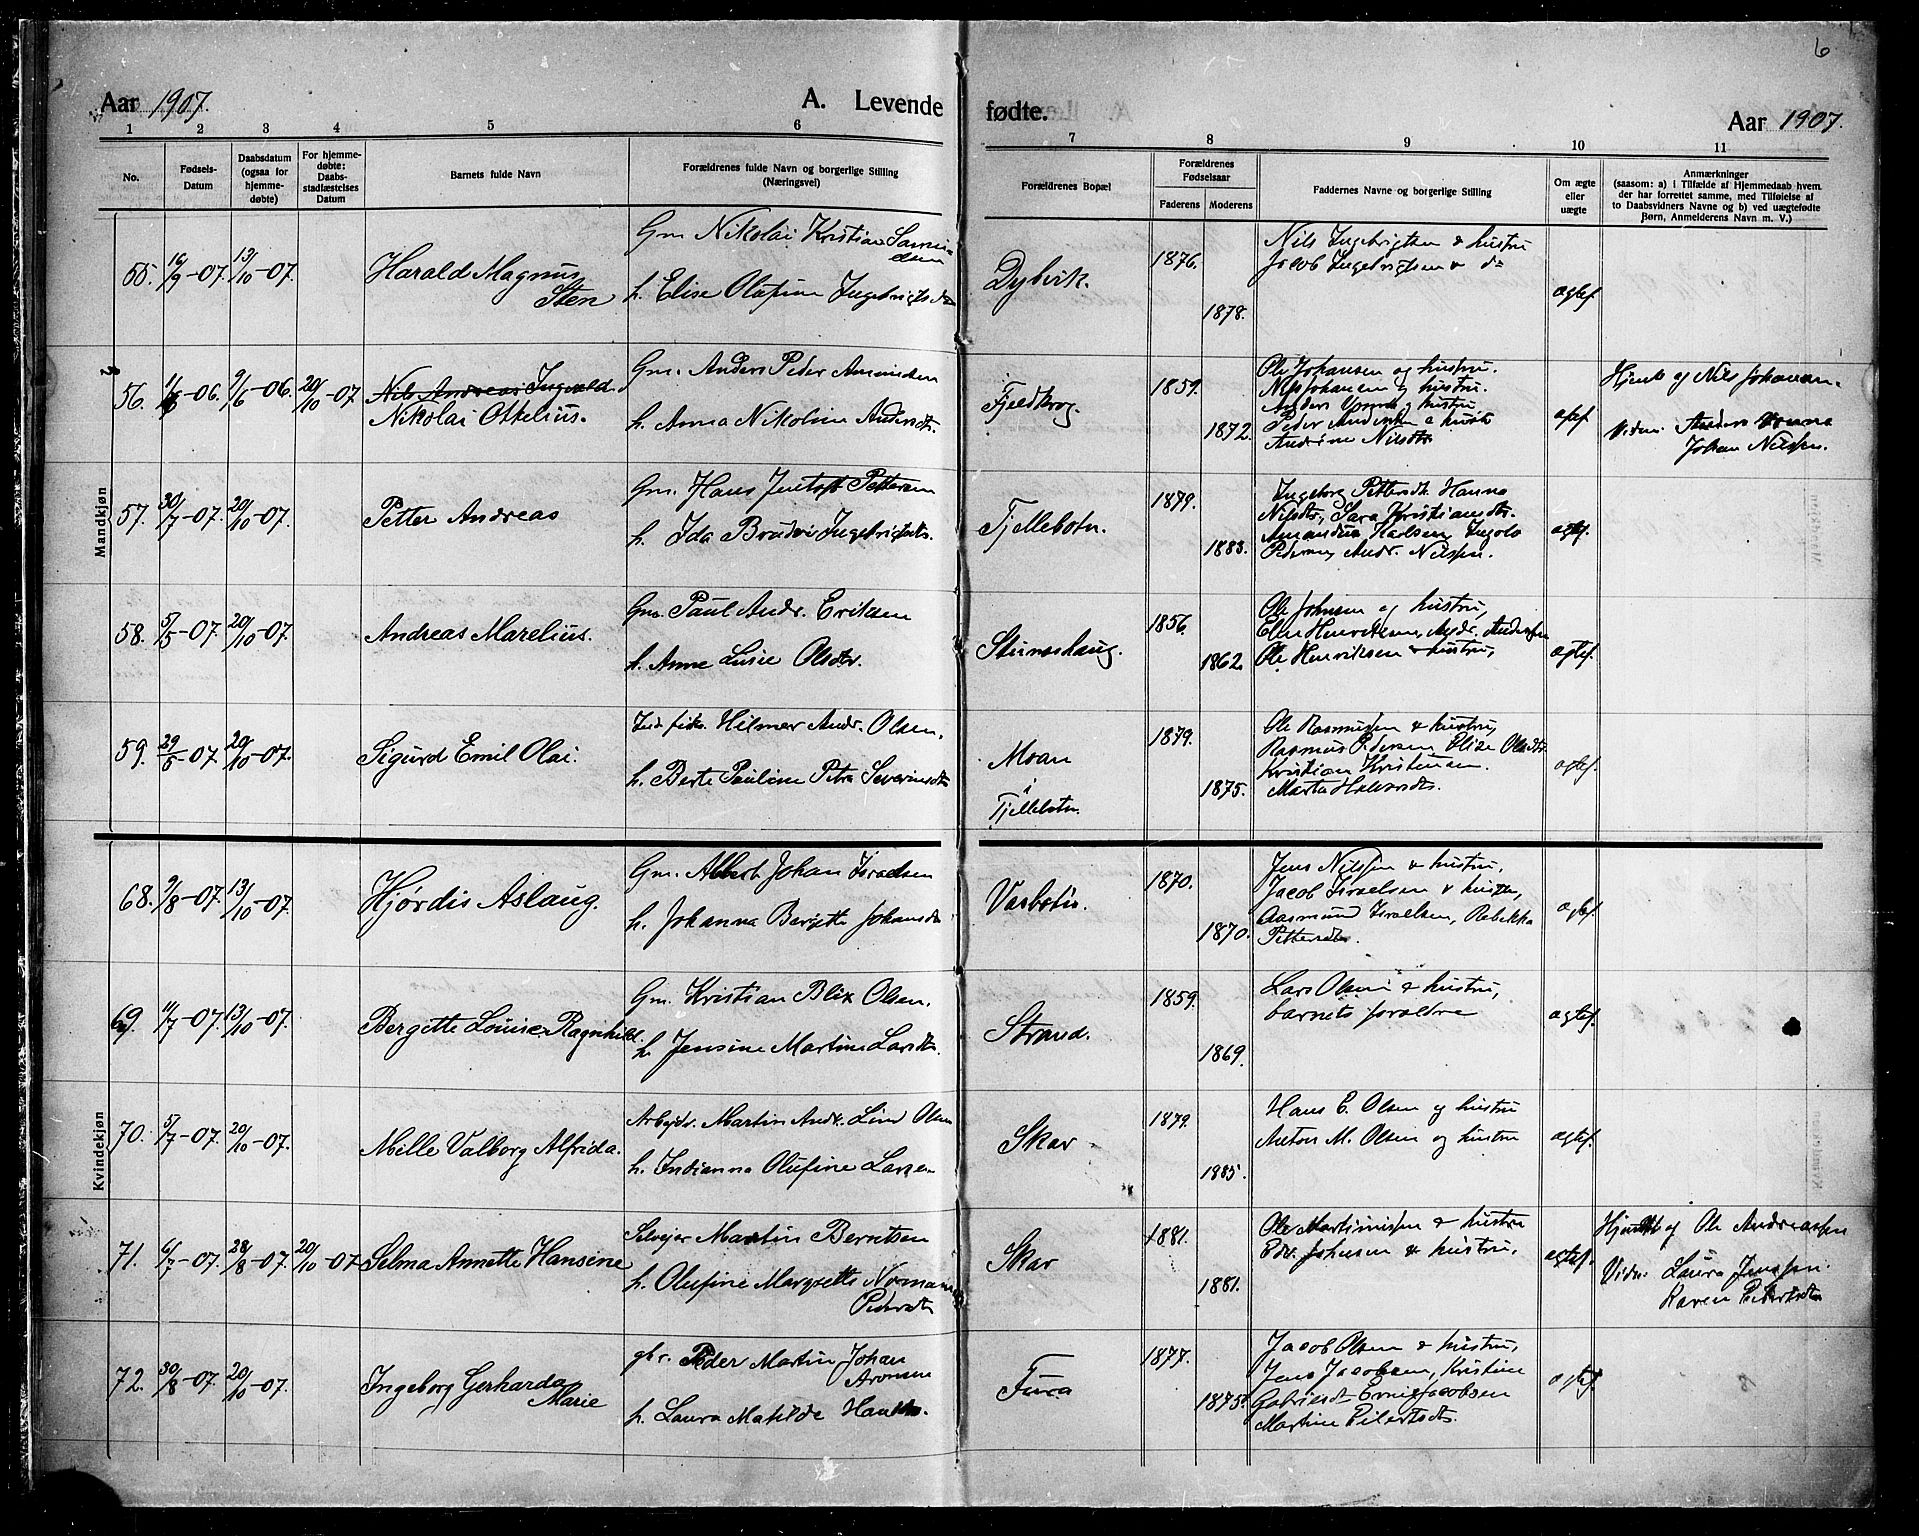 6
Aar 1907.
A. Levende
fødte.
Aar 1907.
1 2 3 4 5 6 7 8 9 10 11
No.
Fødsels-
Datum
Daabsdatum
(ogsaa for
hjemme-
døbte)
For hjemme-
døbte:
Daabs-
stadfæstelses
Datum
Barnets fulde Navn
Forældrenes fulde Navn og borgerlige Stilling
(Næringsvei)
Forældrenes Bopæl
Forældrenes
Fødselsaar
Faderens Moderens
Faddernes Navne og borgerlige Stilling
Om ægte
eller
uægte
Anmærkninger
(saasom: a) i Tilfælde af Hjemmedaab hvem
der har forrettet samme, med Tilføielse af
to Daabsvidners Navne og b) ved uægtefødte
Børn, Anmelderens Navn m. V.)
Mandkjøn
55. 16/9-07. 13/10-07.
Harald Magnus
Sten
Gm Nikolai Kristian
h. Elise Olufine Ingebrigtsd
Dybvik.
1876.
1878.
Nils Ingebrigtsen & hustru
Jacob Ingebrigtsen & do
ægtef.
56. 1/6-06. 9/6-06. 20/10-07
Nils Andreas Ingvald
Nikolai Otkelius.
Gm. Anders Peder Amundsen
h. Anna Nikoline Andersdtr.
Fjeldkrog.
1859.
1872.
Ole Johansen og hustru.
Nils Johansen og hustru.
Anders og hustru
Peder Andersen & hustru
Andrine Nilsdtr
ægtef.
Hjemdt og Nils Johansen.
Vidn: Anders
Johan Nilssen.
57. 30/7-07. 20/10-07.
Petter Andreas
Gm. Hans Jentoft Pettersen
h. Ida Ingebrigtsdtr.
Fjellebotn.
1879.
1883.
Ingeborg Pettersdtr. Hanna
Nilsdtr, Sara Kristiansdtr.
Karlsen
Pedersen, Andr. Nilssen.
ægtef.
58. 5/5-07. 20/10-07.
Andreas Marelius.
Gm. Paul Andr. Eriksen
h. Anne Lusie Olsdtr.
1856.
1862.
Ole Johnsen og hustru,
Henriksen, Andr. Andersen
Ole Henriksen & hustru,
ægtef.
59. 29/5-07. 20/10-07.
Sigurd Emil Olai.
Hilmer Andr. Olsen.
h. Berte Pauline Petra Severinsdtr
Moan
i
Fjellebotn.
1879.
1875.
Ole Rasmussen & hustru,
Rasmus Pedersen Elise Olsdtr.
Kristian Kristiansen.
Marta Halvorsdtr.
ægtef.
Kvindekjøn
68. 9/8-07. 13/10-07.
Hjørdis Aslaug.
Gm. Albert Johan Israelsen
h. Johanna Bergitte Johansd
1870.
1870.
Jens Nilssen & hustru,
Jacob Israelsen & hustru,
Aasmund Israelsen, Rebekka
Pettersdtr.
ægtef.
69. 11/7-07. 13/10-07.
Bergitte Louise Ragnhild.
Gm. Kristian Blix Olsen.
h. Jensine Martine Larsdtr.
Strand.
1859.
1869.
Lars Olsen & hustru,
barnets forældre
ægtef.
70. 5/7-07. 20/10-07.
Mille Valborg Alfrida.
Arbeidr. Martin Andr. Lind Olsen
h. Indianna Olufine Larsen
Skar
1879.
1885.
Hans C. Olsen og hustru
Anton M. Olsen og hustru
ægtef.
71. 6/7-07. 28/8-07. 20/10-07
Selma Annette Hansine
Selveier Martin Berntsen
h. Olufine Margrethe Norman
Pedersdtr
Skar
1881.
1881.
Ole Martinussen & hustru
Edv. Johnsen & hustru.
ægtef.
Hjemdbt og Ole Andreassen
Vidn: Laura Jenssen.
Karen
72. 30/8-07. 20/10-07.
Ingeborg Gerharda
Marie
gbr. Peder Martin Johan
Aronsen
h. Laura Matilde
Fura
1877.
1875.
Jacob Olsen & hustru,
Jens Jacobsen, Kristine
Gabrielsdtr Jacobsen
Martine Peiertsdtr.
ægtef.